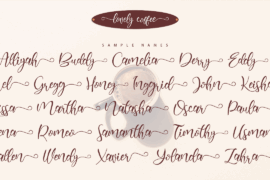 lonely coffee
SAMPLE NAMES
Alliyah Buddy Camelia Derry Eddy
Gregg Honey Ingrid John
Martha Natasha Oscar Paula
Romeo Samantha Timothy Usman
Wendy Xavier Yolanda Zahra